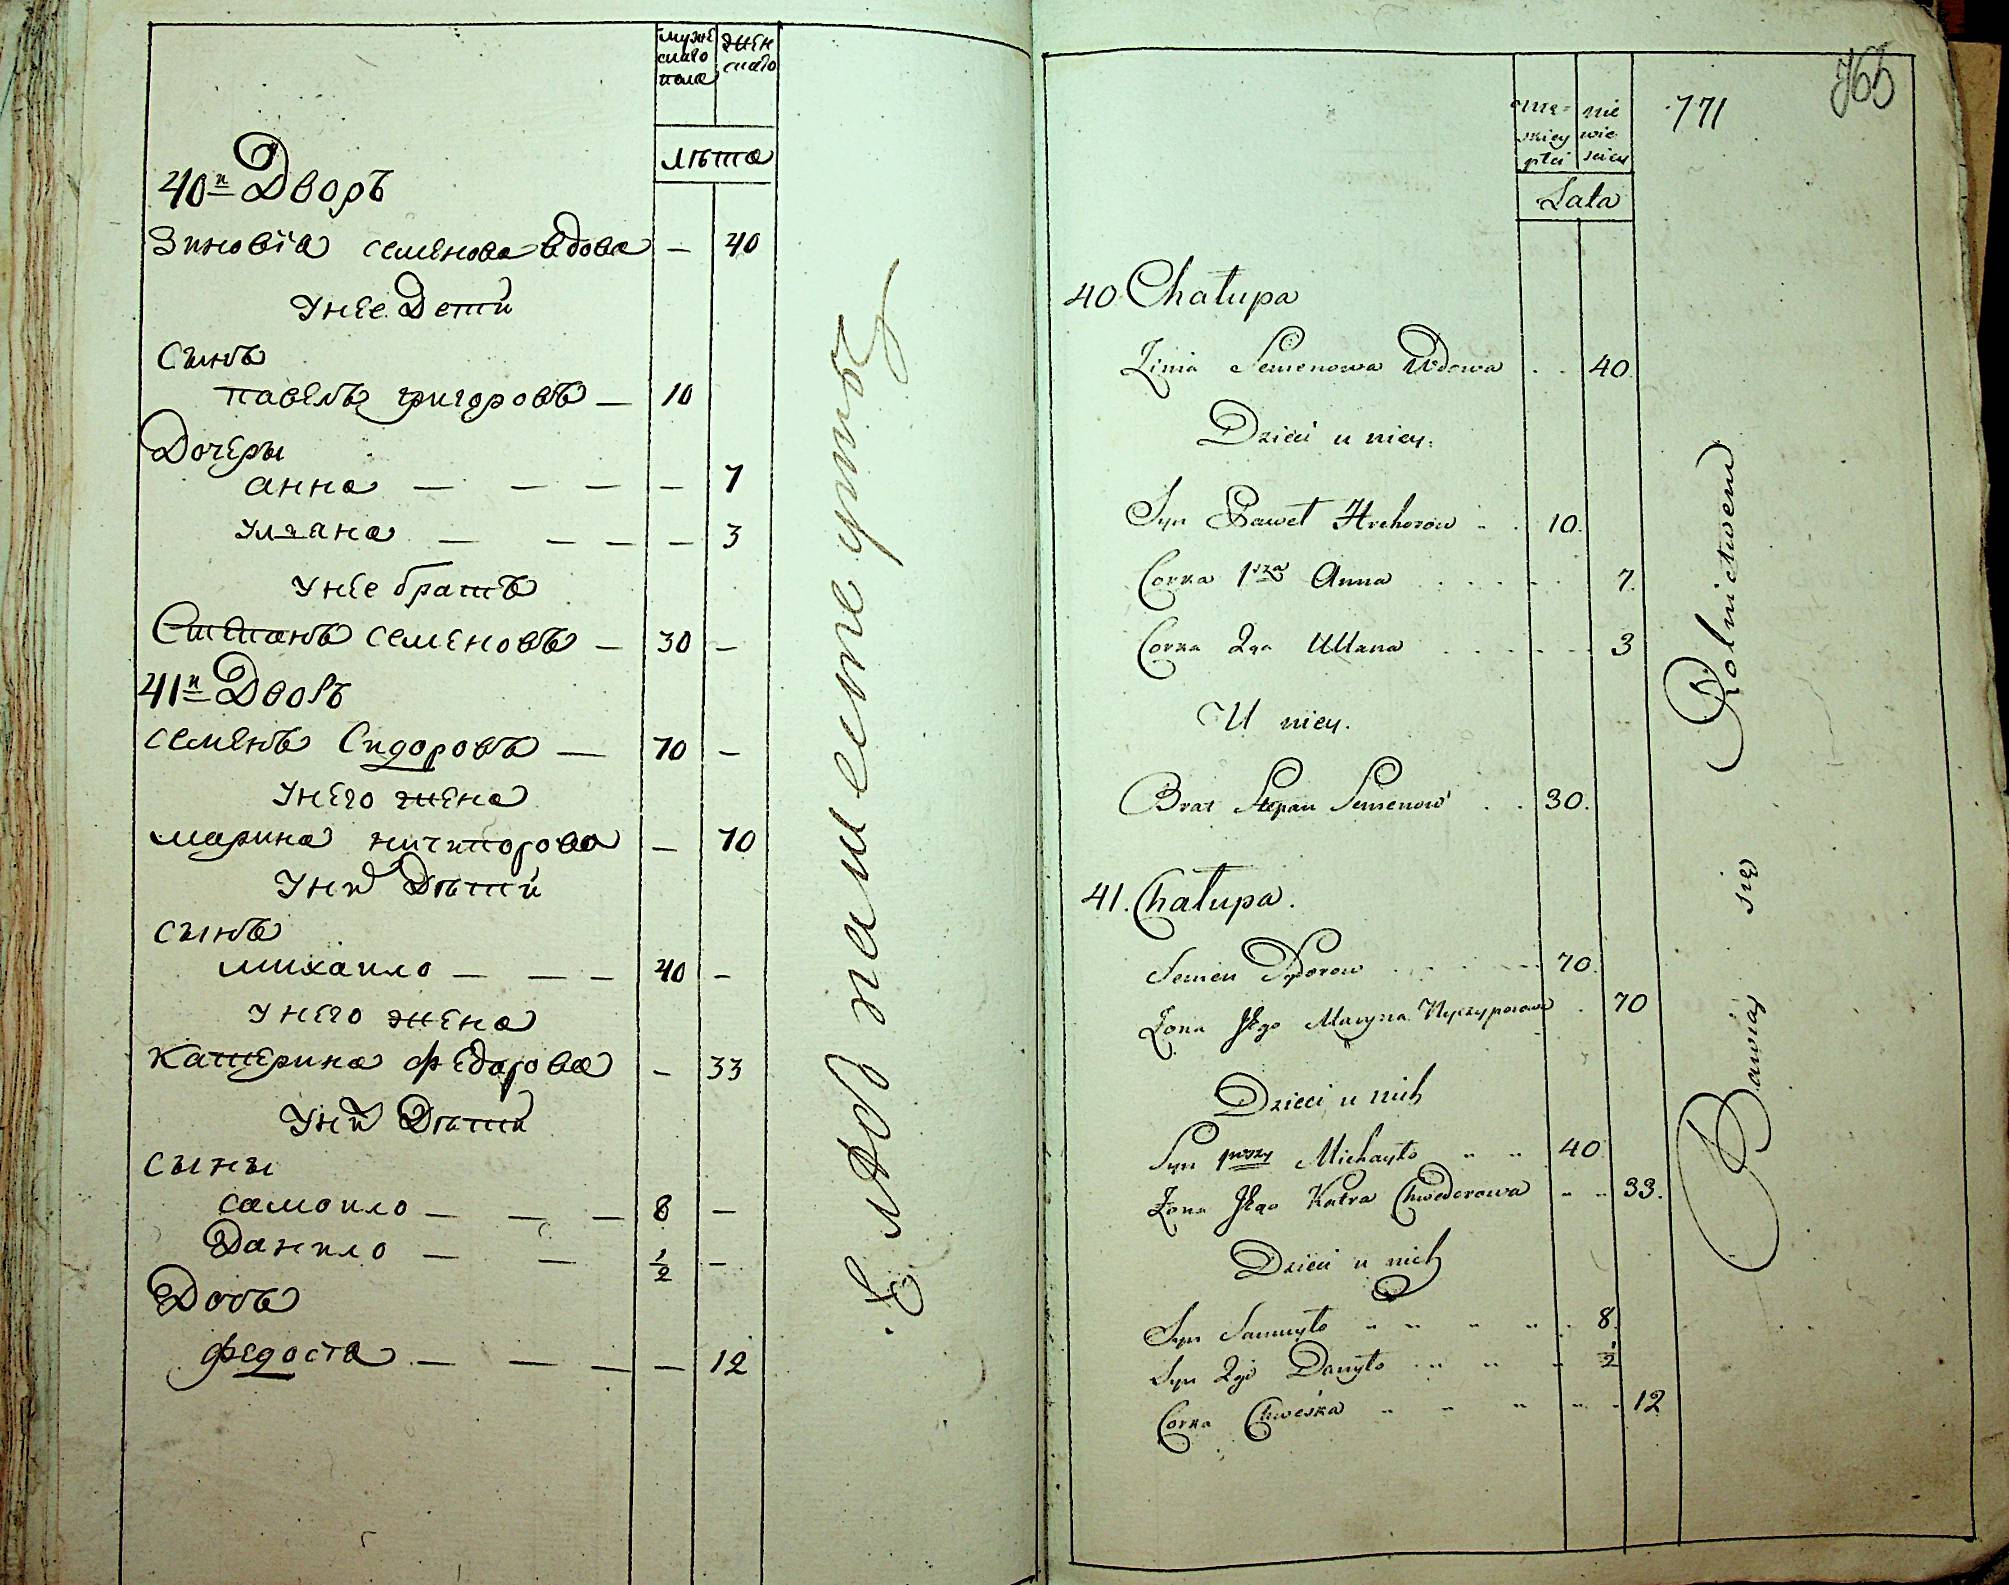 мужескаго пола
женскаго
лѣта
40й Дворъ
Зиновіа семенова вдова — 40
У нее Дети
Сынъ
павелъ григоровъ — 10
Дочеры
анна — — — — 7
Уляна — — — — 3
У нее братъ
Степанъ семеновъ — 30 —
41й Дворъ
семенъ Сидоровъ — 70 —
У него жена
марина ничипорова — 70
У ни Дѣти
сынъ
михаило — — — 40 —
У него жена
катерина федорова — 33
У ни Дѣти
сыны
самоило — — — 8 —
Данило — — 1/2 —
Дочь
федоста — — — — 12
771
męzkiey płci
niewieściey
Lata
40 Chałupa
Zinia Semenowa Wdowa . . 40.
Dzieci u niey.
Syn Paweł Hrehorow . . 10.
Corka 1sza Anna . . . . . 7.
Corka 2ga Ullana . . . . . 3
U niey.
Brat Stepan Semenow . . 30.
41. Chałupa.
Semen Sydorow . . . . . 70.
Zona Jego Maryna Nyczyporowa . 70
Dzieci u nich
Syn 1wszy Michayło " " 40
Zona Jego Katra Chwedorowa " " 33.
Dzieci u nich
Syn Samuyło " " " " " 8.
Syn 2gi Danyło " " " 1/2
Corka Chwéska " " " " 12
Bawią się Rolnictwem